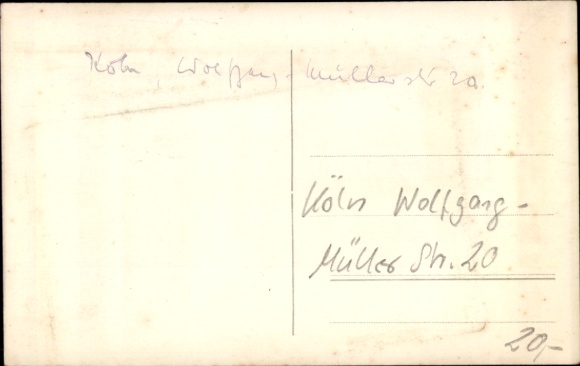 Köln, Wolfgang-Müllerstr 20.
Köln Wolfgang-
Müller Str. 20
20,-